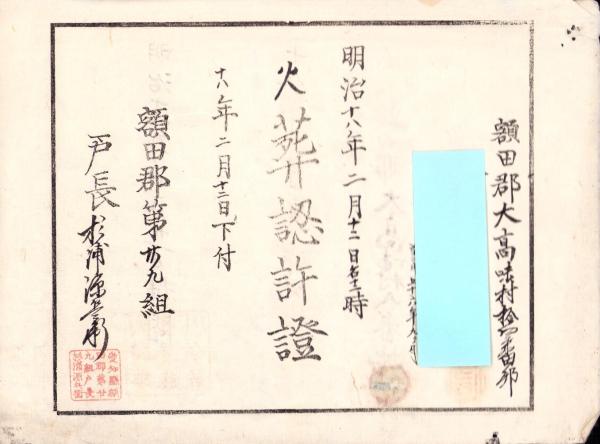 額田郡大高味村拾四番邸
明治十八年二月十二日午后十二時
火葬認許證
十八年二月十三日下付
額田郡第廿九組
戸長杉浦源兵衛
愛知縣額
田郡第廿
九組戸長
杉浦源兵衛